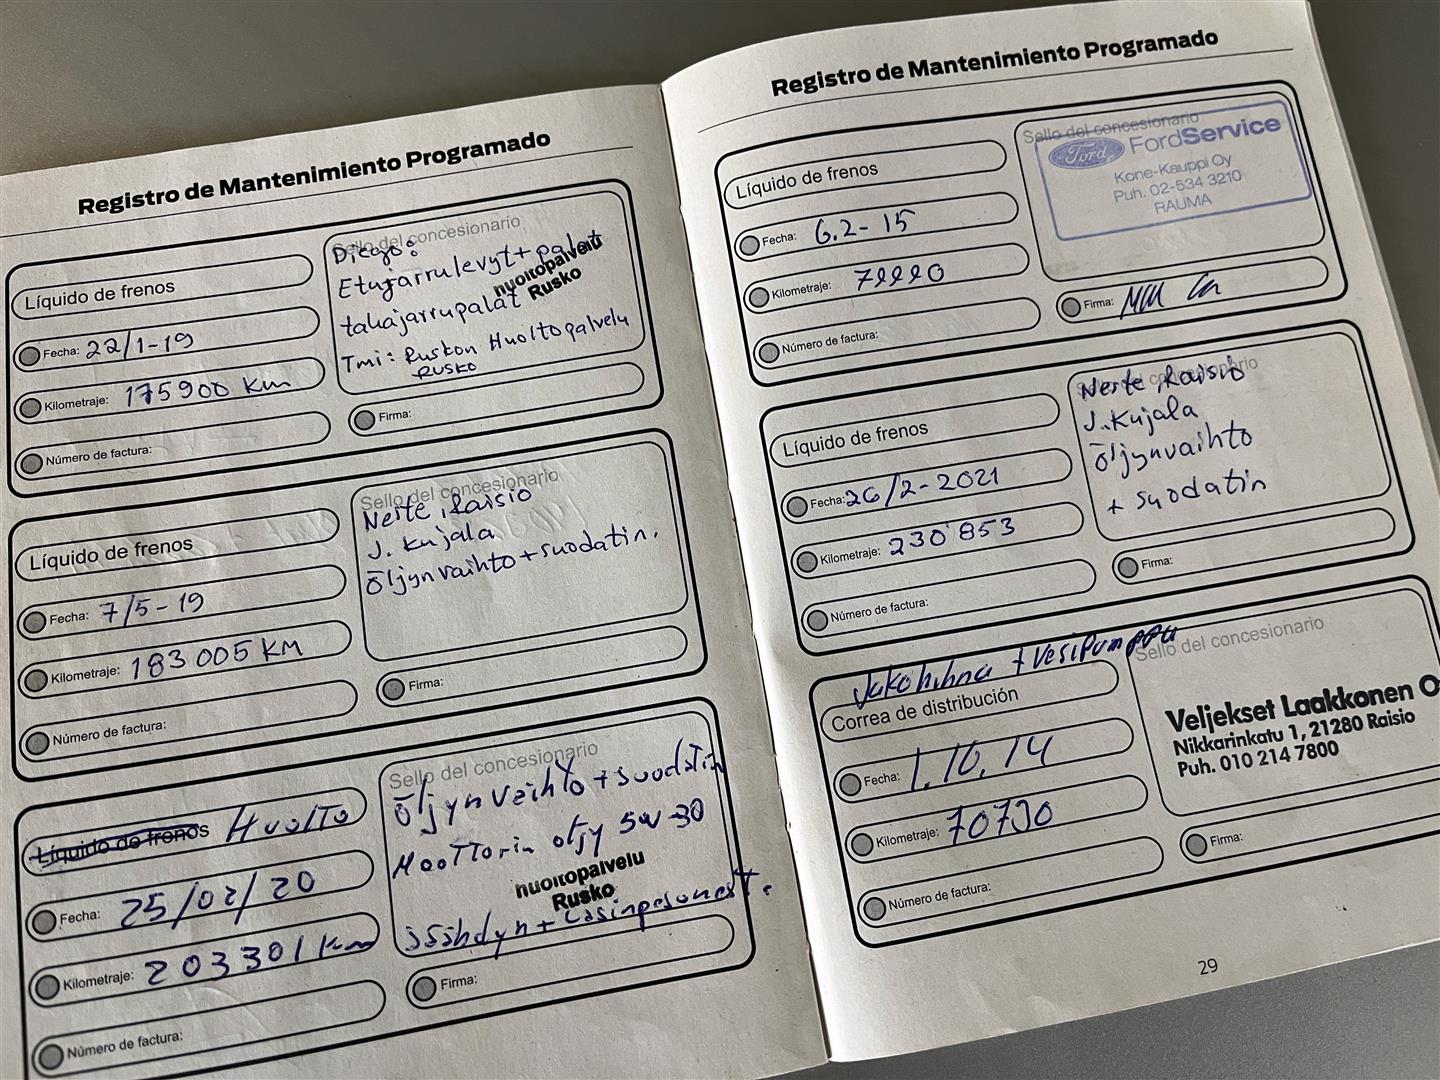 Registro de Mantenimiento Programado
Líquido de frenos
Fecha: 22/1-19
Kilometraje: 175900 Km
Número de factura:
Sello del concesionario
Diego:
Etujarrulevyt + palat
takajarrupalat
Tmi: Ruskon Huoltopalvelu
RUSKO
huoltopalvelu
Rusko
Firma:
Líquido de frenos
Fecha: 7/5-19
Kilometraje: 183 005 KM
Número de factura:
Sello del concesionario
Neste, Raisio
J. Kujala
öljynvaihto + suodatin.
Firma:
Líquido de frenos HUOLTO
Fecha: 25/02/20
Kilometraje: 203301 km
Número de factura:
Sello del concesionario
öljynvaihto + suodatin
Moottorin öljy 5W-30
huoltopalvelu
Rusko
jäähdyn + Lasinpesunest.
Firma:
Registro de Mantenimiento Programado
Líquido de frenos
Fecha: 6.2-15
Kilometraje:
Número de factura:
Sello del concesionario
Ford FordService
Kone-Kauppi Oy
Puh. 02-534 3210
RAUMA
Firma:
Líquido de frenos
Fecha: 26/2-2021
Kilometraje: 230'853
Número de factura:
Sello del concesionario
Neste, Raisio
J. Kujala
öljynvaihto
+ suodatin
Firma:
Jakohihna + Vesipumppu
Correa de distribución
Fecha: 1.10.14
Kilometraje: 70730
Número de factura:
Sello del concesionario
Veljekset Laakkonen O
Nikkarinkatu 1, 21280 Raisio
Puh. 010 214 7800
Firma:
29